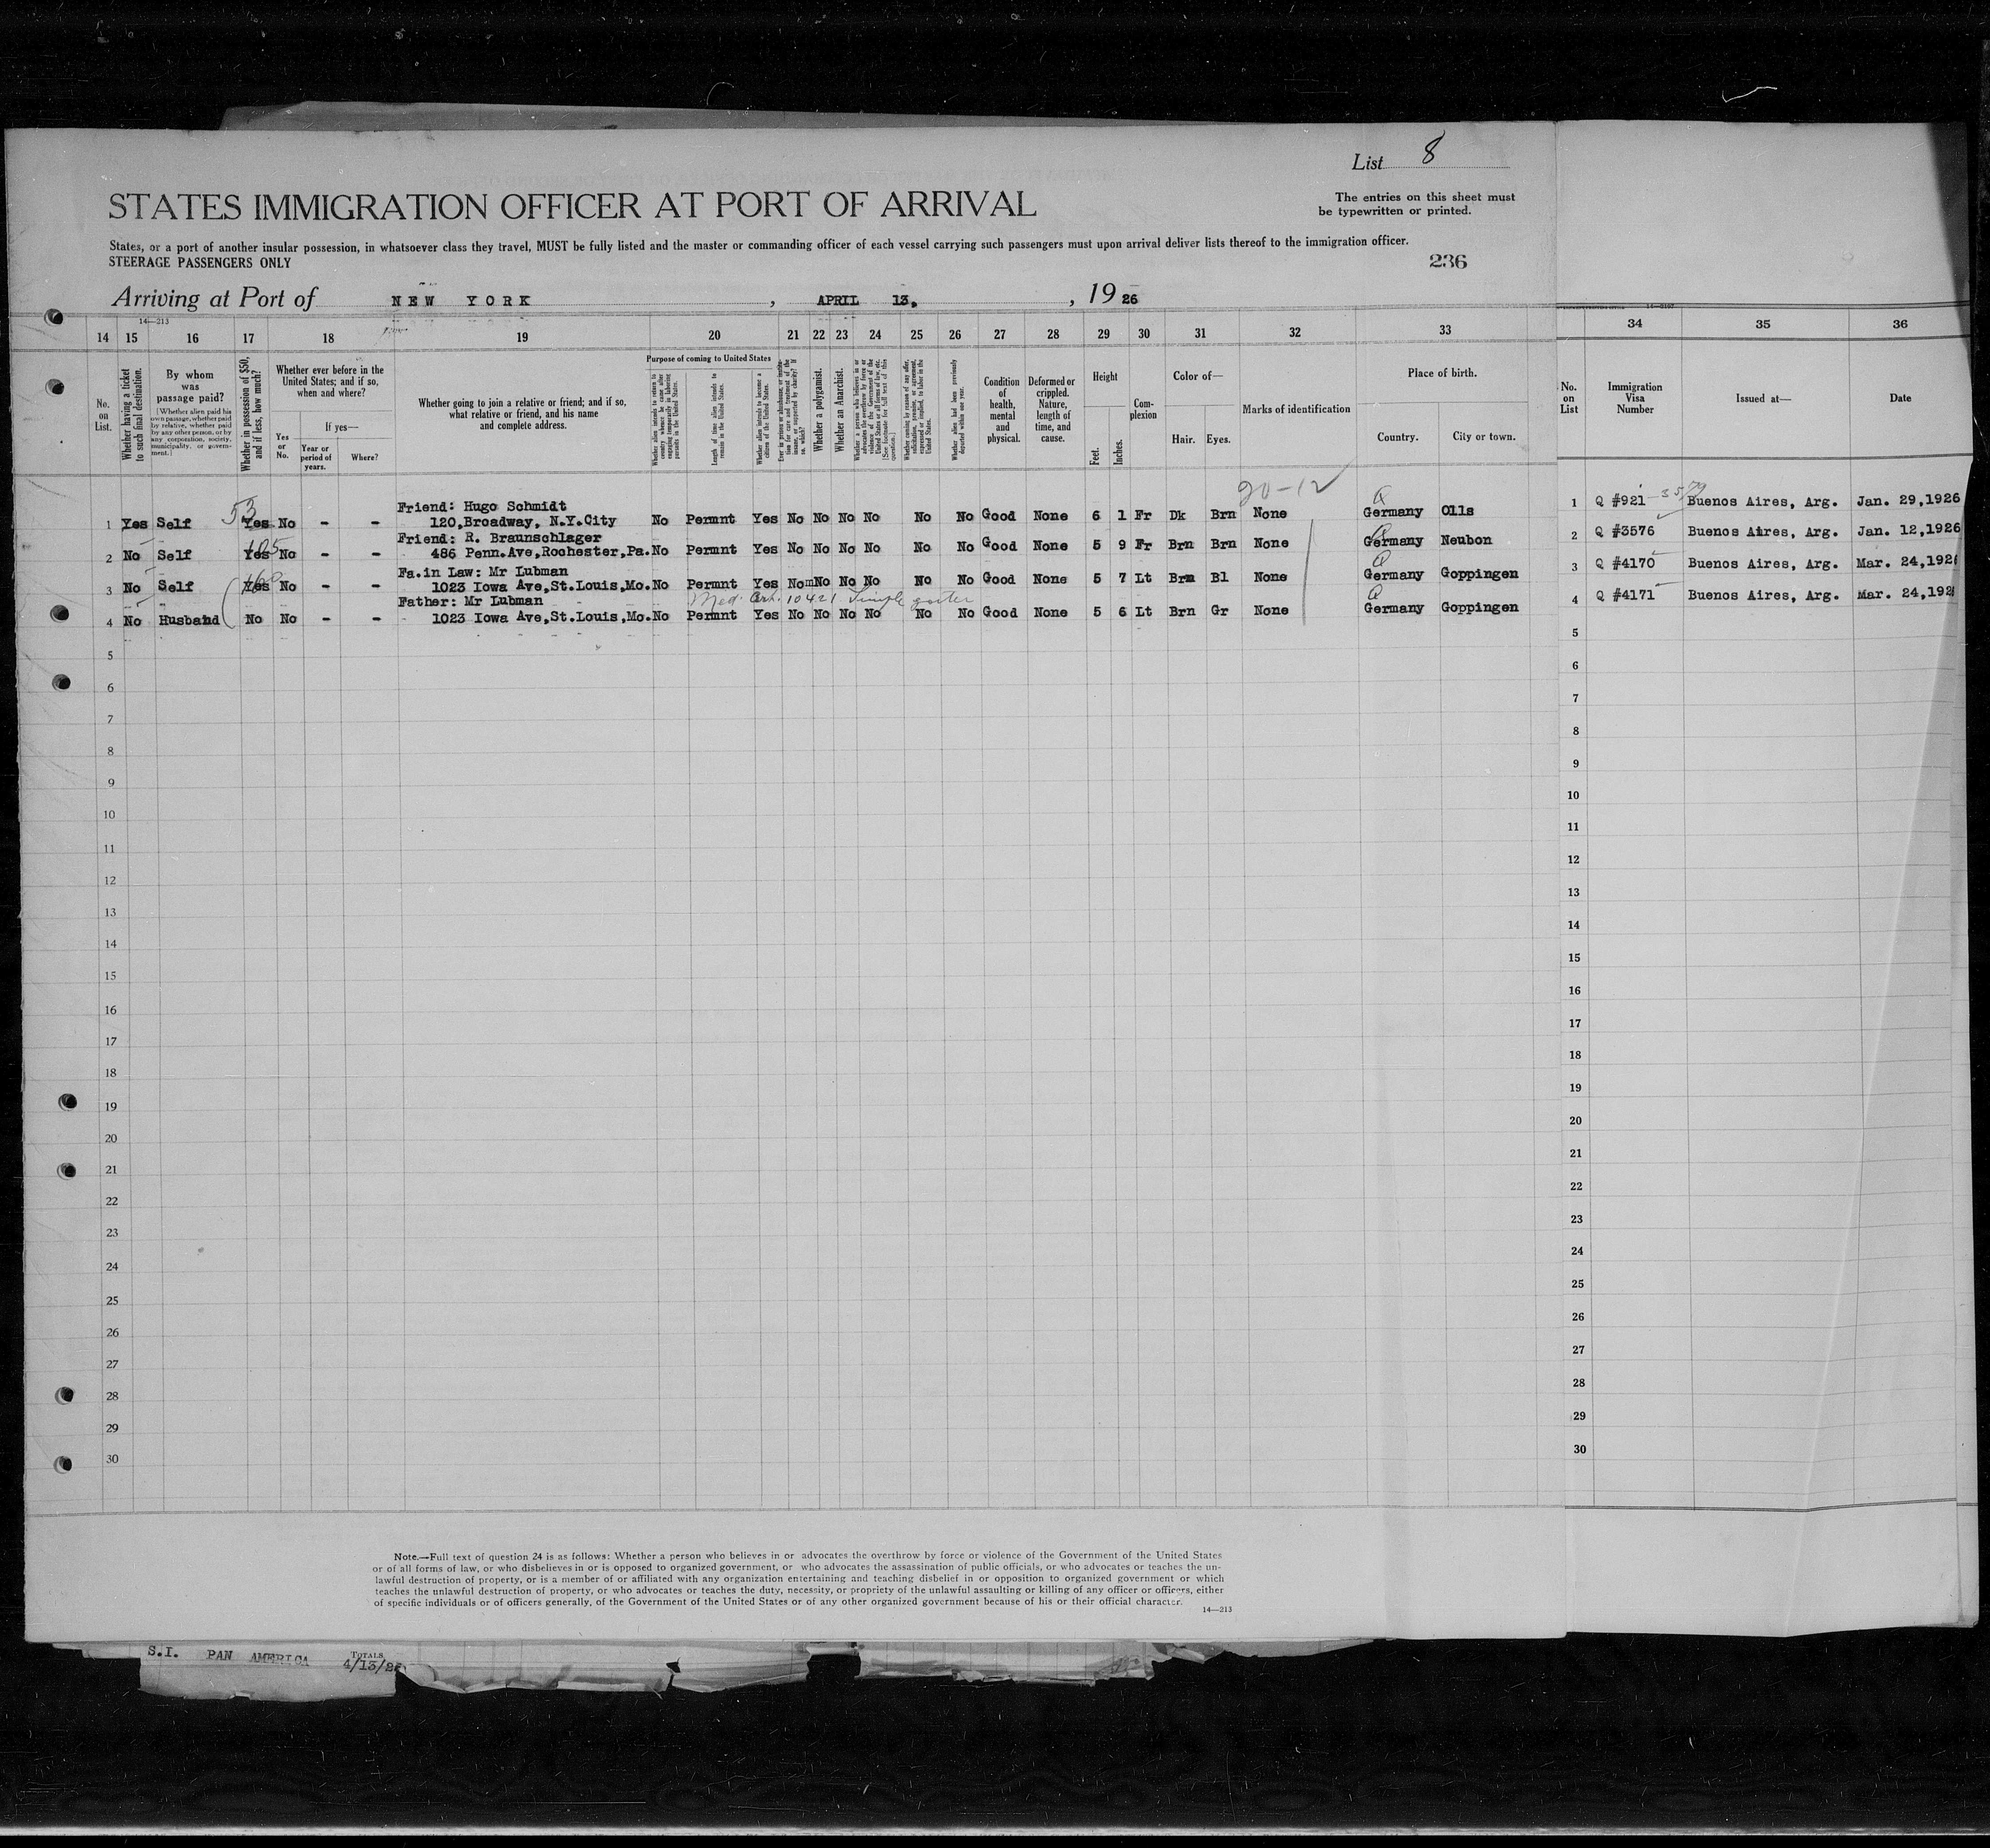 List 8
STATES IMMIGRATION OFFICER AT PORT OF ARRIVAL
The entries on this sheet must
be typewritten or printed.
States, or a port of another insular possession, in whatsoever class they travel, MUST be fully listed and the master or commanding officer of each vessel carrying such passengers must upon arrival deliver lists thereof to the immigration officer.
STEERAGE PASSENGERS ONLY
236
Arriving at Port of NEW YORK, APRIL 13, 1926
14—213
14 15 16 17 18 19 20 21 22 23 24 25 26 27 28 29 30 31 32 33 34 35 36
No. on List.
Whether having a ticket to such final destination.
By whom was passage paid?
[Whether alien paid his own passage, whether paid by relative, whether paid by any other person, or by any corporation, society, municipality, or government.]
Whether in possession of $50, and if less, how much?
Whether ever before in the United States; and if so, when and where?
Yes or No.
If yes—
Year or period of years.
Where?
Whether going to join a relative or friend; and if so, what relative or friend, and his name and complete address.
Purpose of coming to United States
Whether alien intends to return to country whence he came after engaging temporarily in laboring pursuits in the United States.
Length of time alien intends to remain in the United States.
Whether alien intends to become a citizen of the United States.
Ever in prison or almshouse, or institution for care and treatment of the insane, or supported by charity? If so, which?
Whether a polygamist.
Whether an Anarchist.
Whether a person who believes in or advocates the overthrow by force or violence of the Government of the United States or all forms of law, etc. [See footnote for full text of this question.]
Whether coming by reason of any offer, solicitation, promise, or agreement, expressed or implied, to labor in the United States.
Whether alien had been previously deported within one year.
Condition of health, mental and physical.
Deformed or crippled. Nature, length of time, and cause.
Height
Feet.
Inches.
Complexion
Color of—
Hair.
Eyes.
Marks of identification
Place of birth.
Country.
City or town.
No. on List
Immigration Visa Number
Issued at—
Date
20-12
53
Friend: Hugo Schmidt
1 Yes Self Yes No - - 120,Broadway, N.Y.City No Permnt Yes No No No No No No Good None 6 1 Fr Dk Brn None Germany Olls 1 Q #921 Buenos Aires, Arg. Jan. 29,1926
105
Friend: R. Braunschlager
2 No Self Yes No - - 486 Penn.Ave,Rochester,Pa. No Permnt Yes No No No No No No Good None 5 9 Fr Brn Brn None Germany Neubon 2 Q #3576 Buenos Aires, Arg. Jan. 12,1926
Fa.in Law: Mr Lubman
3 No Self Yes No - - 1023 Iowa Ave,St.Louis,Mo. No Permnt Yes No No No No No No Good None 5 7 Lt Brn Bl None Germany Goppingen 3 Q #4170 Buenos Aires, Arg. Mar. 24,192
Father: Mr Lubman
Med. Cert. 10421 Simple goiter
4 No Husband No No - - 1023 Iowa Ave,St.Louis,Mo. No Permnt Yes No No No No No No Good None 5 6 Lt Brn Gr None Germany Goppingen 4 Q #4171 Buenos Aires, Arg. Mar. 24,192
5 5
6 6
7 7
8 8
9 9
10 10
11 11
12 12
13 13
14 14
15 15
16 16
17 17
18 18
19 19
20 20
21 21
22 22
23 23
24 24
25 25
26 26
27 27
28 28
29 29
30 30
Note.—Full text of question 24 is as follows: Whether a person who believes in or advocates the overthrow by force or violence of the Government of the United States
or of all forms of law, or who disbelieves in or is opposed to organized government, or who advocates the assassination of public officials, or who advocates or teaches the un-
lawful destruction of property, or is a member of or affiliated with any organization entertaining and teaching disbelief in or opposition to organized government or which
teaches the unlawful destruction of property, or who advocates or teaches the duty, necessity, or propriety of the unlawful assaulting or killing of any officer or officers, either
of specific individuals or of officers generally, of the Government of the United States or of any other organized government because of his or their official character.
14—213
S.I. PAN AMERICA TOTALS 4/13/26